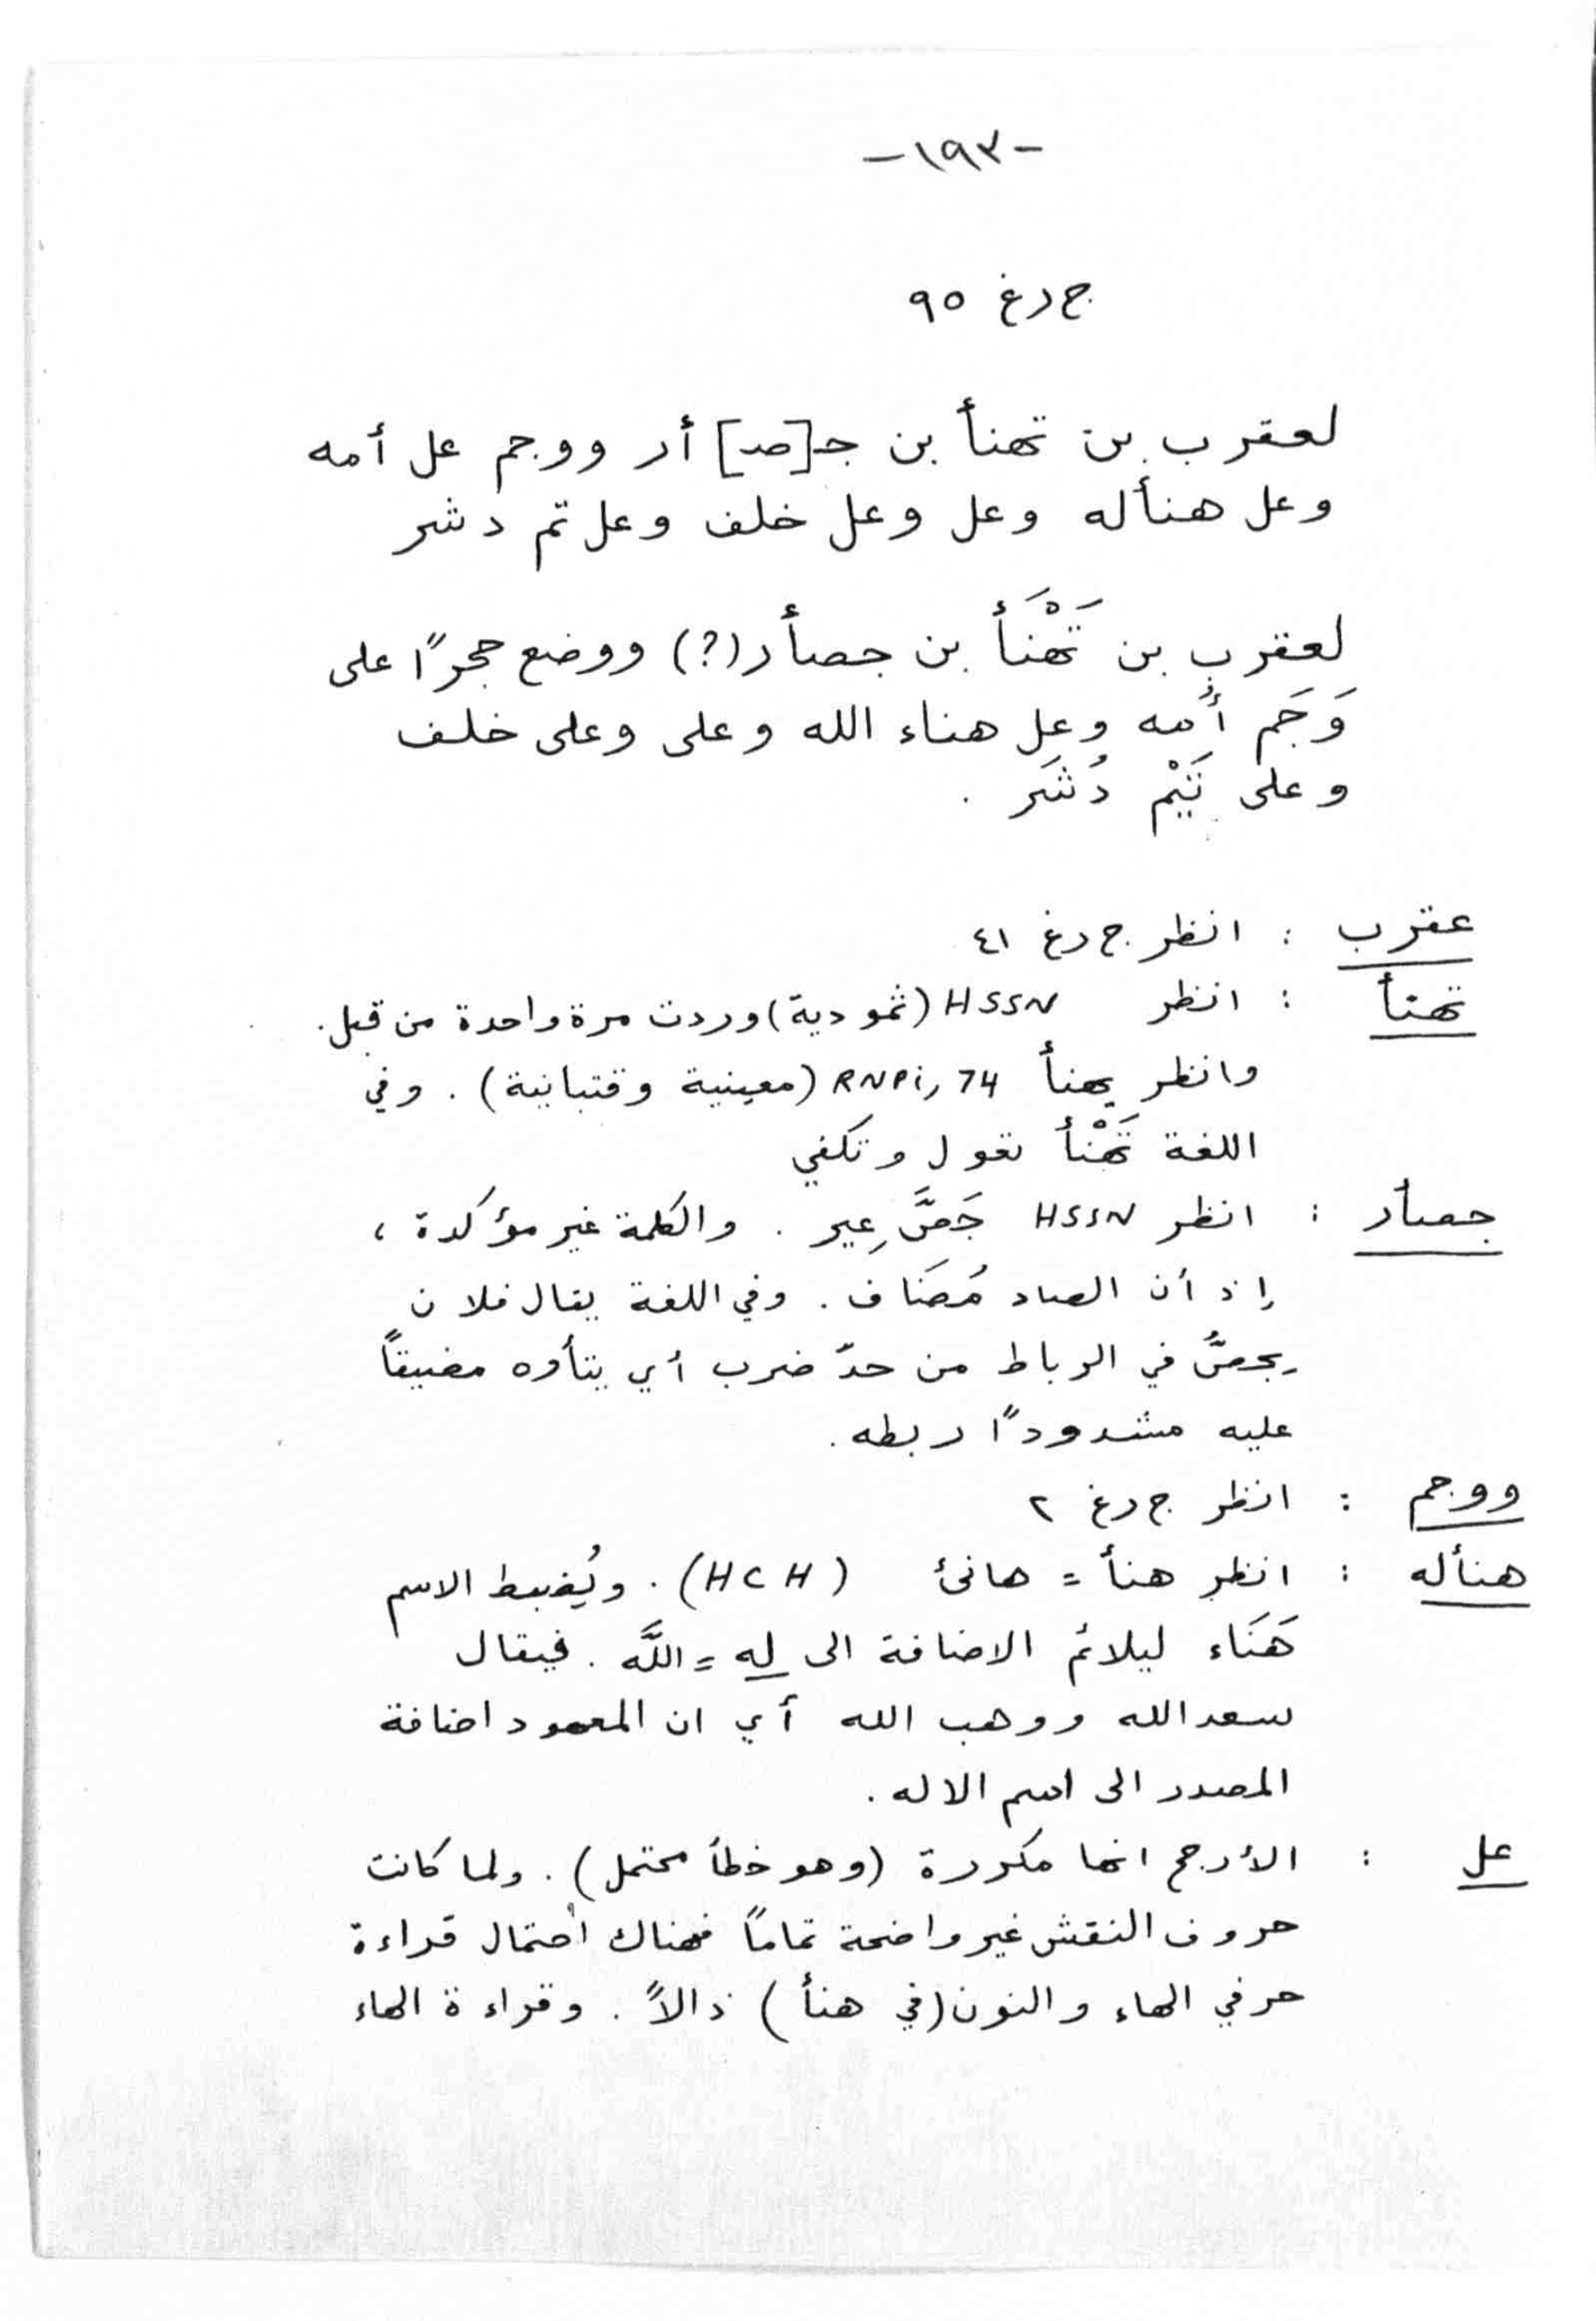 -١٩٣-
ج رغ ٩٥
لعقرب بن تهنأ بن جـ[صـ] أر ووجم عل أمه
وعل هنأله وعل وعل خلف وعل تم دشر
لعقرب بن تَهْنَأ بن جصأر (?) ووضع حجرًا على
وَجَم أُمه وعل هناء الله وعلى وعلى خلف
وعلى تَيْم دُشَر .
عقرب : انظر ج رغ ٤١
تهنأ : انظر HSSN (ثمودية) وردت مرة واحدة من قبل.
وانظر يهنأ RNPi, 74 (معينية وقتبانية) . وفي
اللغة تَهْنأ تعول وتكفي
جصأر : انظر HSSN جَصَّ عِير . والكلمة غير مؤكدة ،
إذ أن الصاد مُضَاف . وفي اللغة يقال فلان
يجصُّ في الرباط من حدّ ضرب أي يتأوه مضيقاً
عليه مشدودًا ربطه .
ووجم : انظر ج رغ ٢
هنأله : انظر هنأ = هانئ (HCH) . ويُضبط الاسم
هَنَاء ليلائم الاضافة الى له = اللَّه . فيقال
سعد الله ووهب الله أي ان المعهود اضافة
المصدر الى اسم الاله .
عل : الأرجح انها مكررة (وهو خطأ محتمل) . ولما كانت
حروف النقش غير واضحة تماماً فهناك احتمال قراءة
حرفي الهاء والنون (في هنأ) ذالاً . وقراءة الهاء